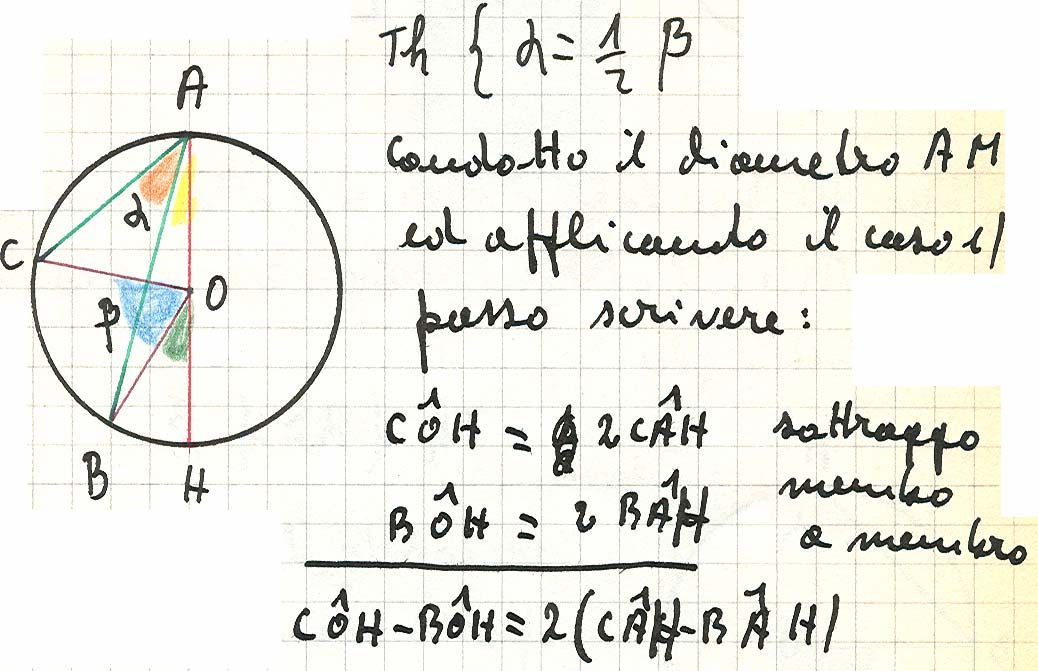 Th { α = 1/2 β
condotto il diametro AH
ed applicando il caso 1)
posso scrivere:
CÔH = 2 CÂH sottraggo
BÔH = 2 BÂH membro
a membro
CÔH - BÔH = 2(CÂH - BÂH)
A
α
C
O
β
B
H